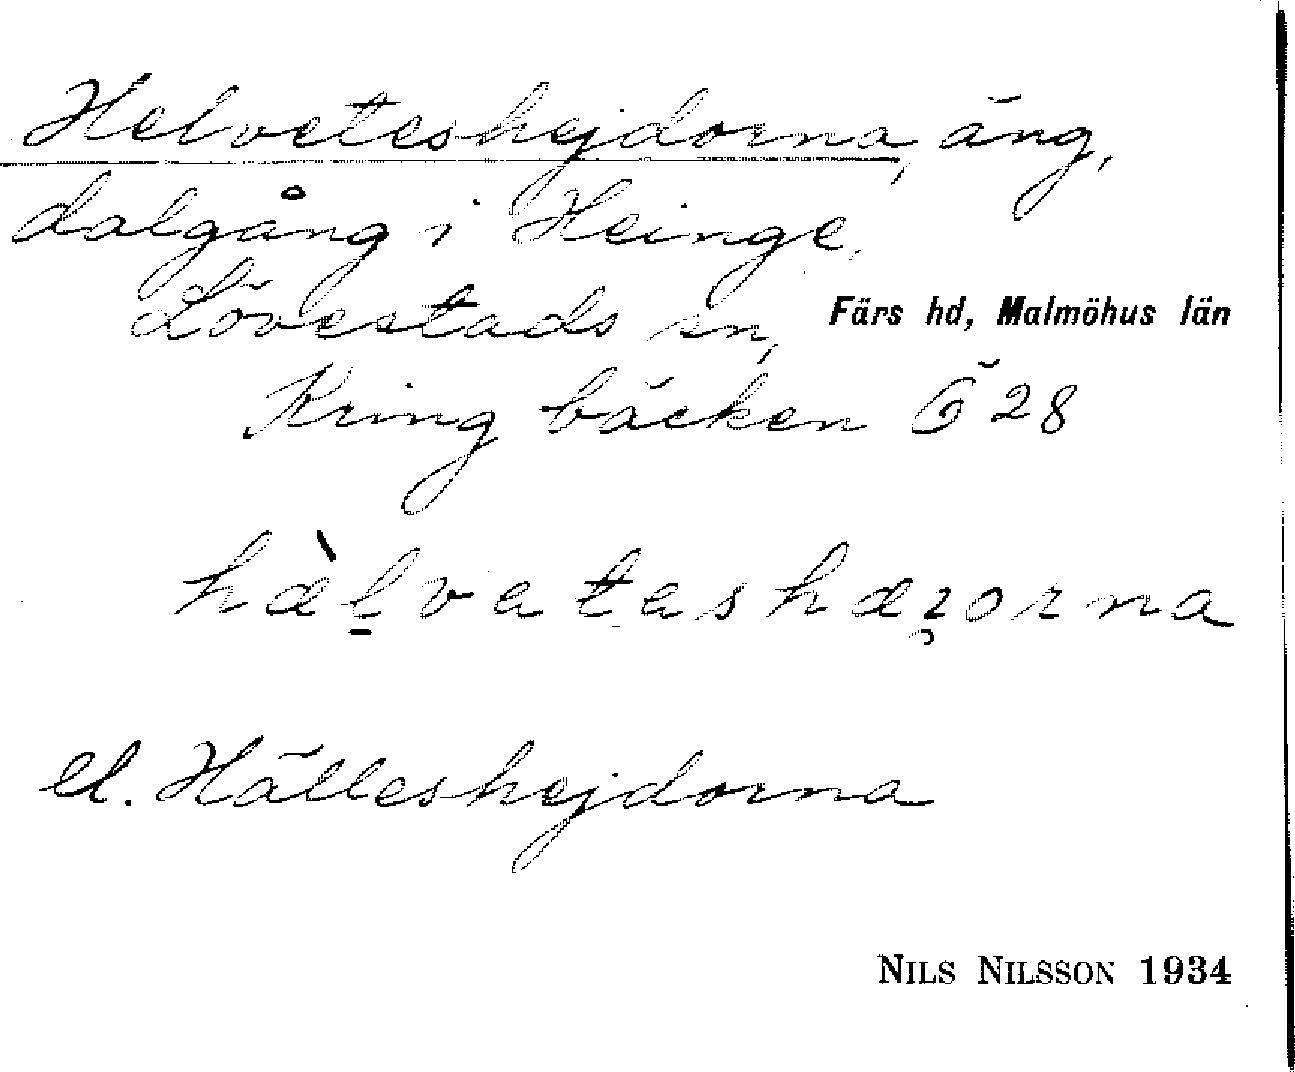 Helveteshejdorna, äng,
dalgång i Heinge,
Lövestads sn, Färs hd, Malmöhus län
Kring bäcken Ö 28
hæ̀lvetashæȷorna
el. Hälleshejdorna
NILS NILSSON 1934